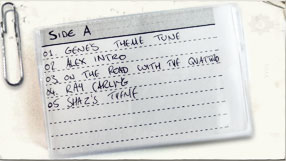 SIDE A
01. GENE'S THEME TUNE
02. ALEX INTRO
03. ON THE ROAD WITH THE QUATTRO
04. RAY CARLING
05 SHAZ'S THEME